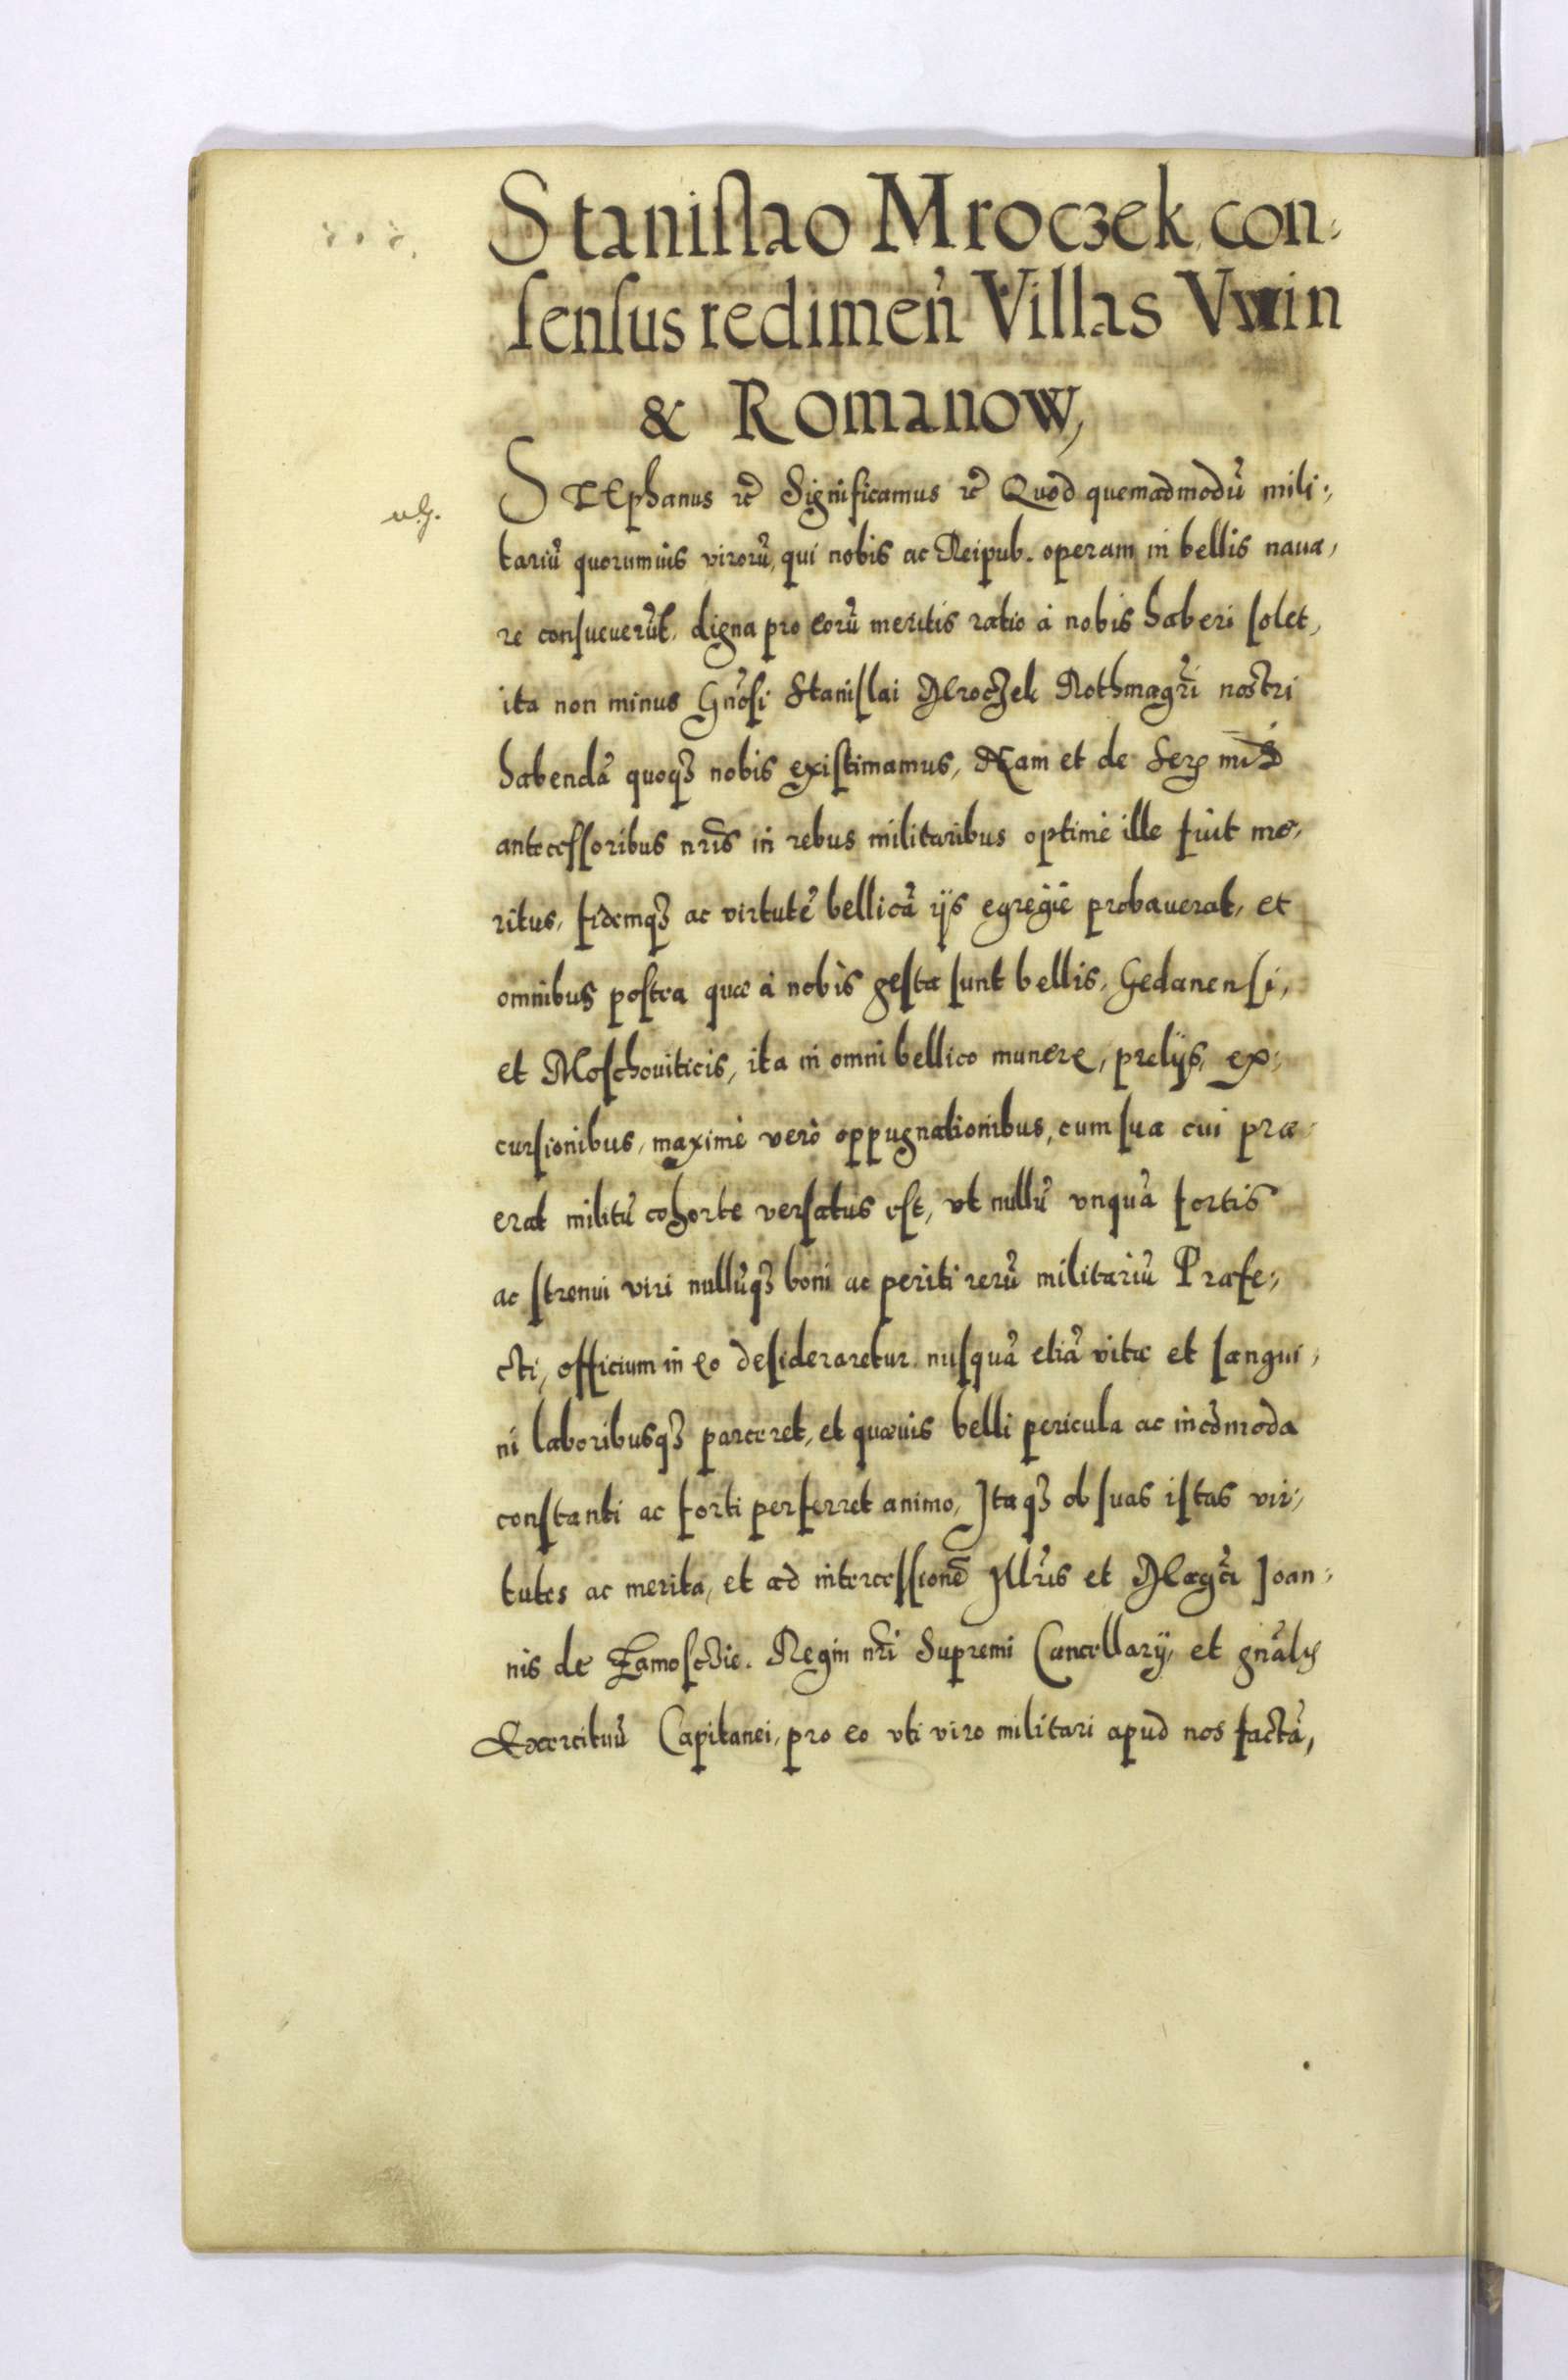 Staniſlao Mroczek con:
ſenſus redimen̄ Villas Vwin
& Romanow,
STEphanus ꝛc̄ Significamus ꝛc̄ Quod quemadmodū mili:
tariū quorumuis virorū, qui nobis ac Reipub. operam in bellis naua,
re conſueuerūt, digna pro eorū meritis ratio à nobis haberi ſolet,
ita non minus Gn̄oſi Staniſlai Mroczek Rothmagr̄i nostri
habendā quoqꝫ nobis exiſtimamus, Nam et de Ser
anteceſſoribus nr̄is in rebus militaribus optimè ille fuit me,
ritus, fidemqꝫ ac virtutē bellicā ijs egregiè probauerat, et
omnibus poſtea quæ à nobis geſta ſunt bellis, Gedanenſi,
et Moſchouiticis, ita in omni bellico munere, prelijs, ex:
curſionibus, maximè verò oppugnationibus, cum ſua cui præ:
erat militū cohorte verſatus eſt, vt nullū vnquā fortis
ac ſtrenui viri nullūqꝫ boni ac periti rerū militariū Præfe:
cti, officium in eo deſideraretur, nuſquā etiā vitæ et ſangui:
ni laboribusqꝫ parceret, et quæuis belli pericula ac incōmoda
conſtanti ac forti perferret animo, Itaqꝫ ob ſuas iſtas vir:
tutes ac merita, et ad interceſſionē Illr̄is et Magc̄i Joan:
nis de Zamoſchie. Regni nr̄i Supremi Cancellarij, et gn̄alis
Exercituū Capitanei, pro eo vti viro militari apud nos factā,